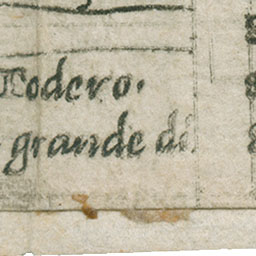 Todero.
grande di